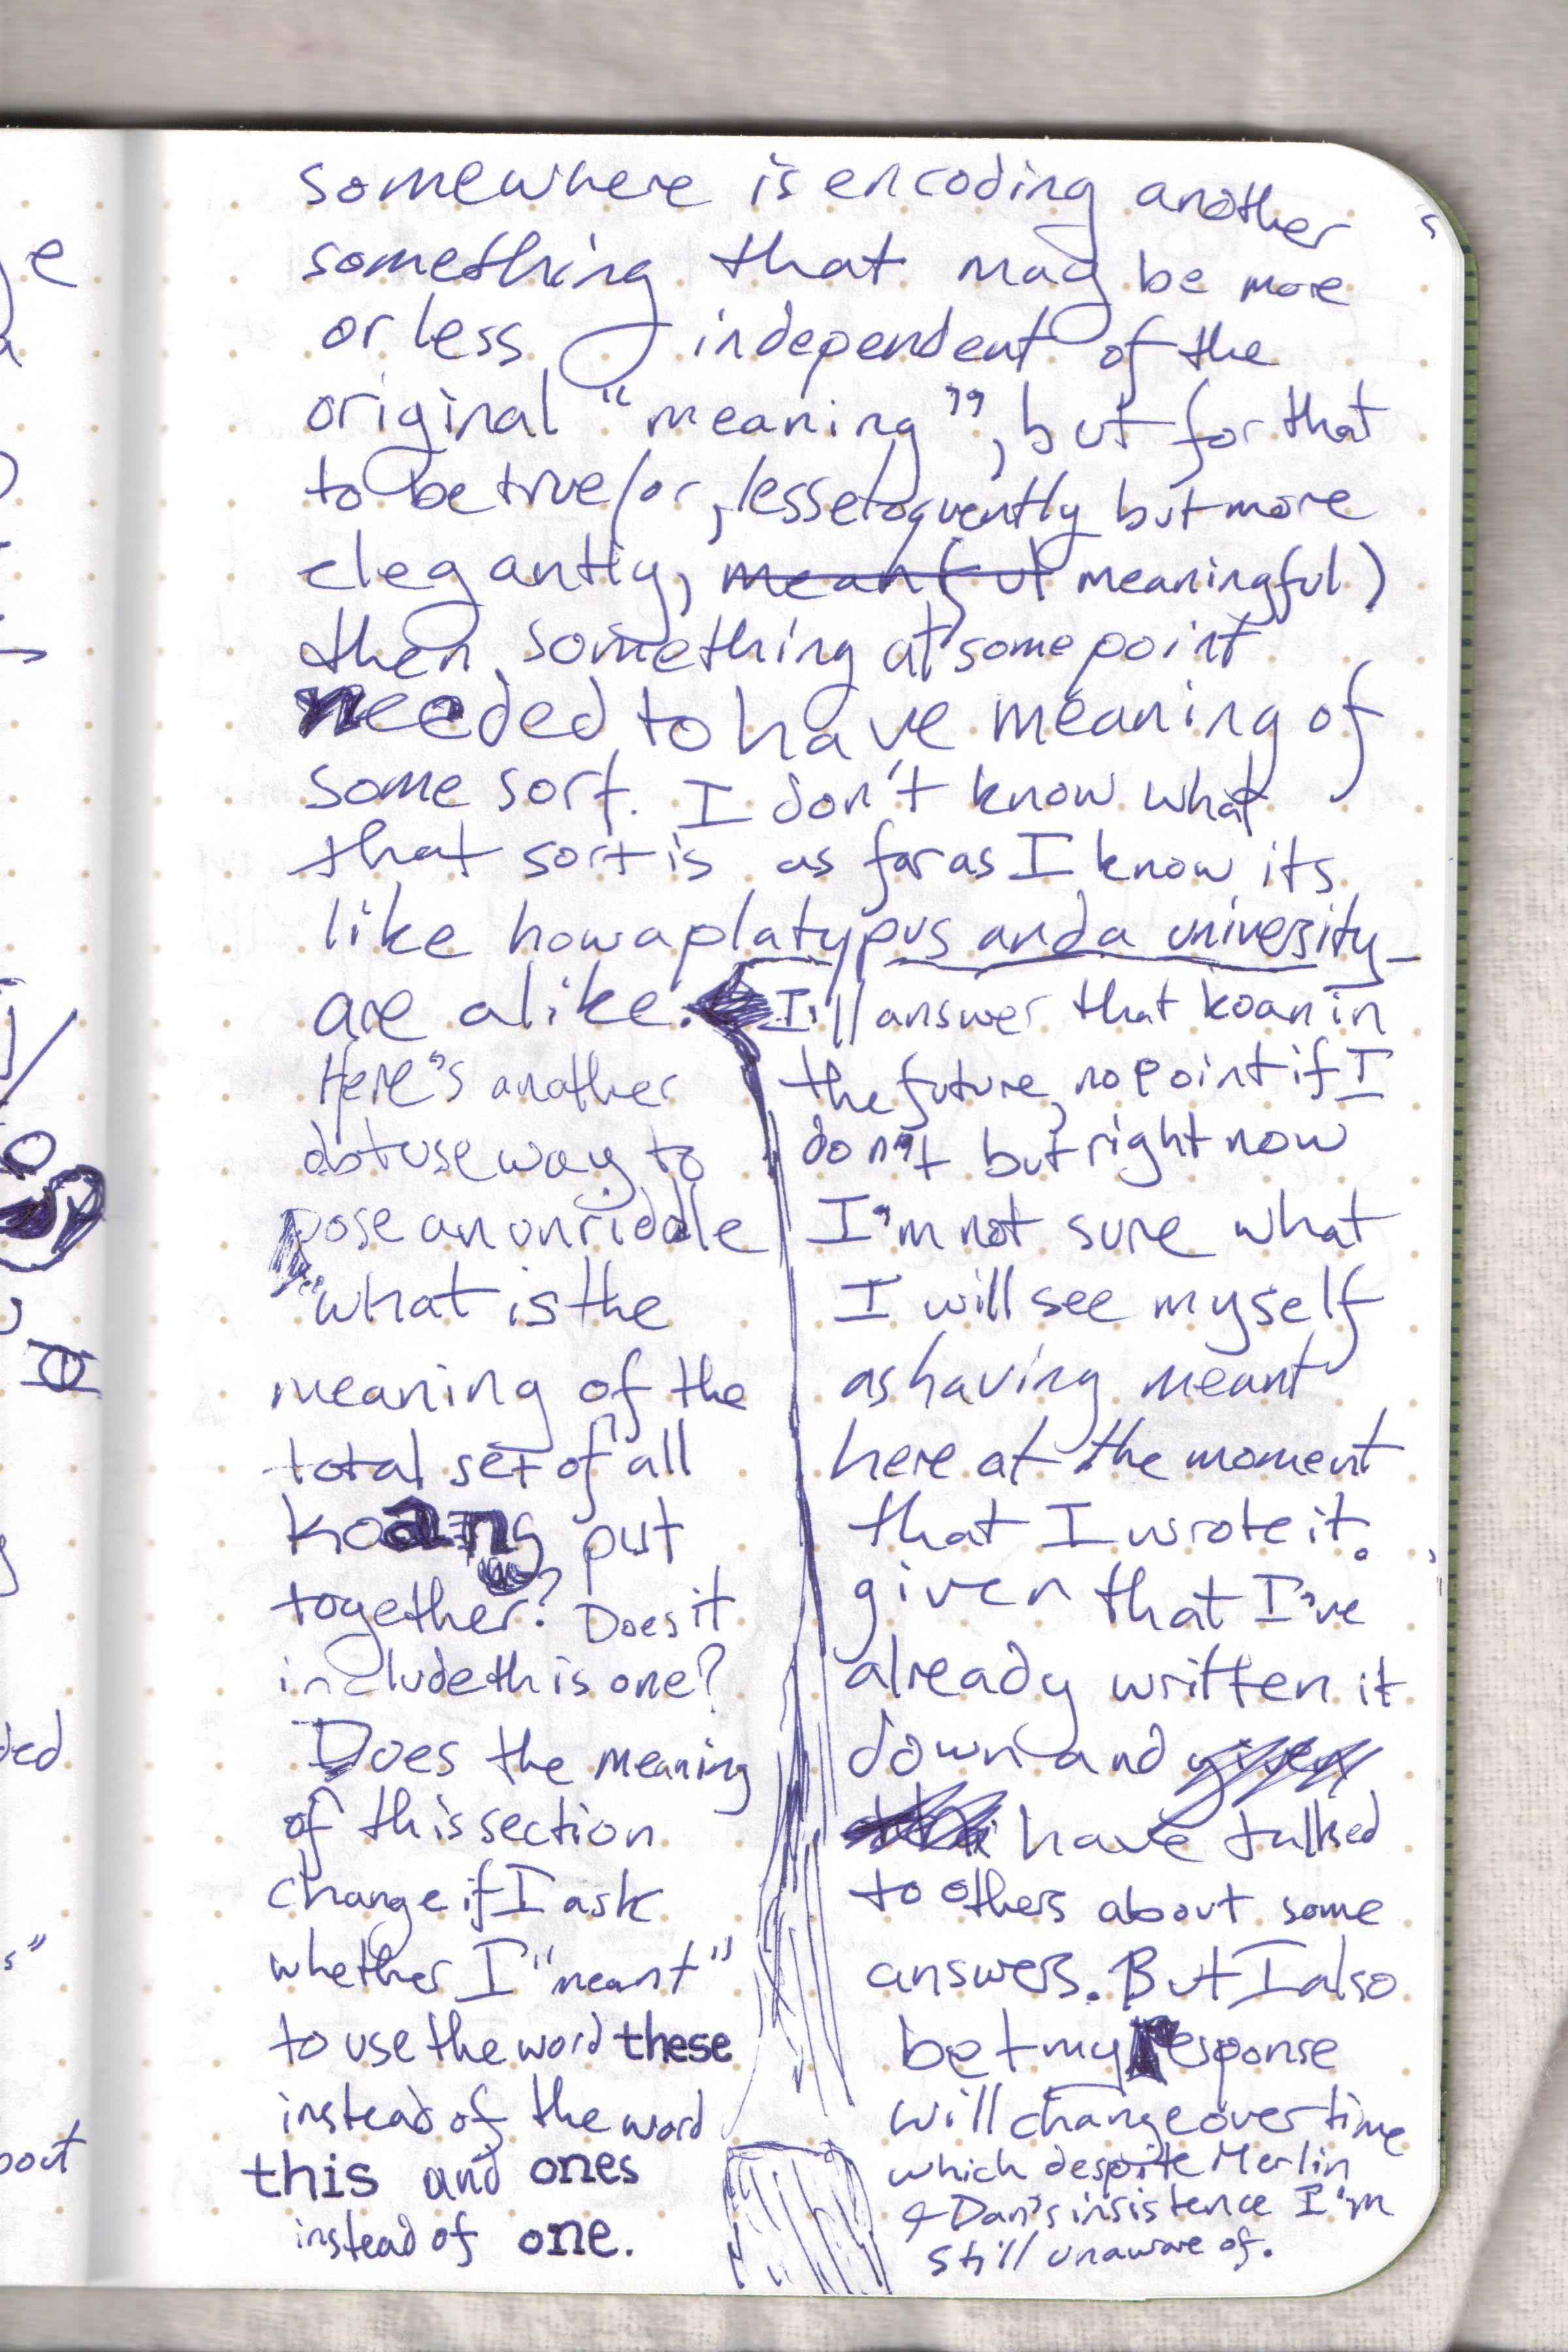 somewhere is encoding another
something that may be more
or less independent of the
original "meaning", but for that
to be true (or, less eloquently but more
elegantly, meanful meaningful)
then something at some point
needed to have meaning of
some sort. I don't know what
that sort is as far as I know its
like how a platypus and a university
are alike.
Here's another
obtuse way to
pose an unriddle
"what is the
meaning of the
total set of all
koans put
together? Does it
include this one?
Does the meaning
of this section
change if I ask
whether I "meant"
to use the word these
instead of the word
this and ones
instead of one.
I'll answer that koan in
the future, no point if I
don't but right now
I'm not sure what
I will see myself
as having meant
here at the moment
that I wrote it.
given that I've
already written it
down and given
have talked
to others about some
answers. But I also
bet my response
will change over time
which despite Merlin
& Dan's insistence I'm
still unaware of.
e
ded
s"
bout